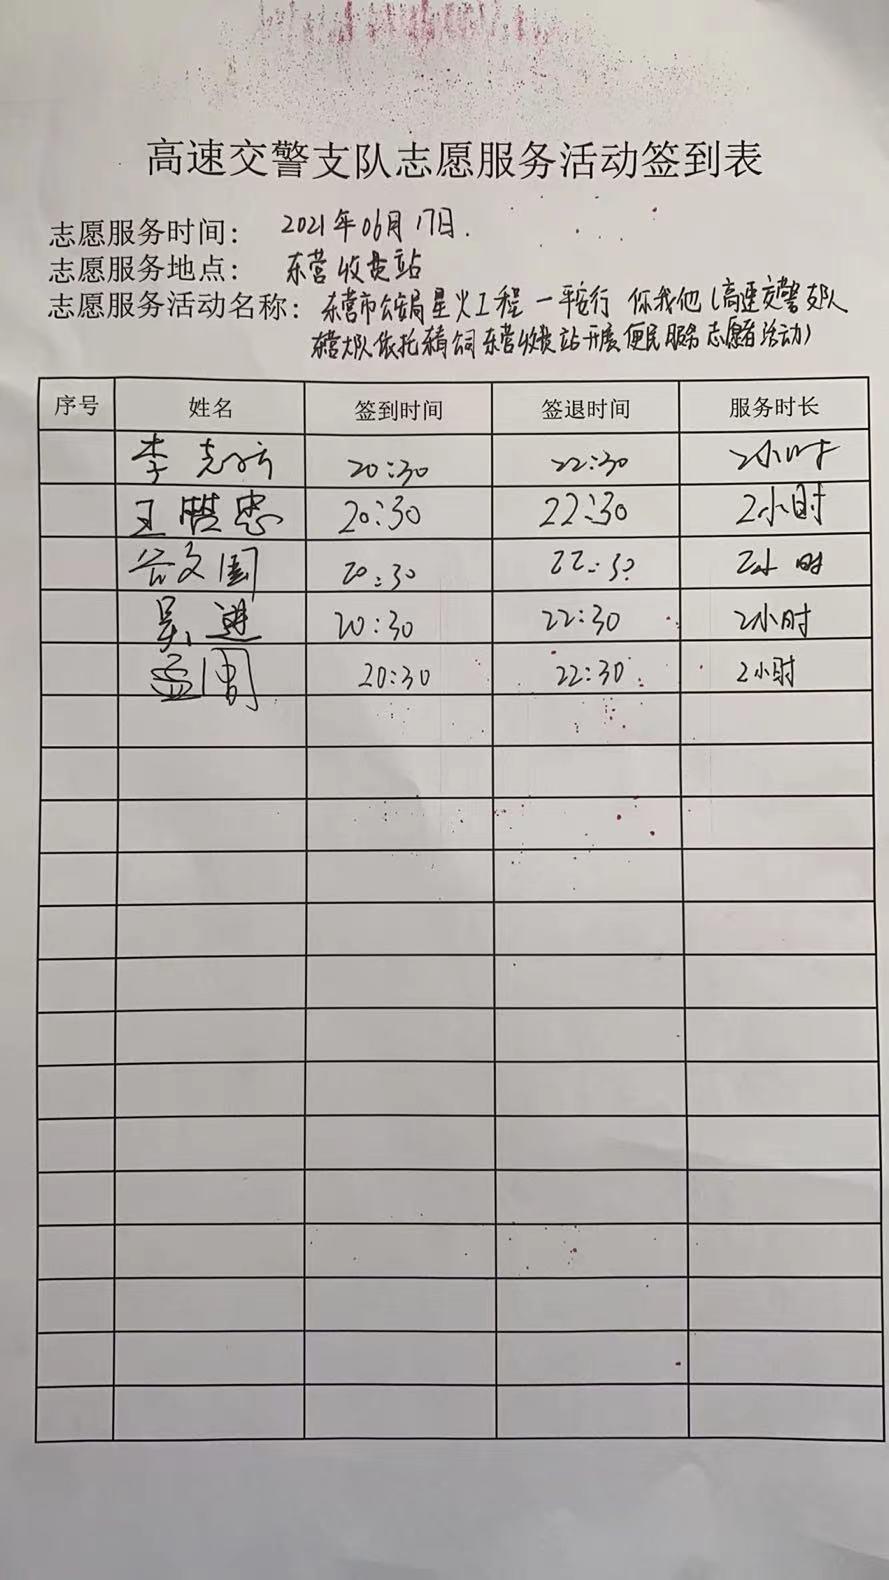 高速交警支队志愿服务活动签到表
志愿服务时间: 2021年06月17日.
志愿服务地点: 东营收费站
志愿服务活动名称: 东营市公安局星火工程一平安行 你我他(高速交警支队
东营大队依托 东营收费站开展便民服务志愿者活动)
序号 姓名 签到时间 签退时间 服务时长
李 20:30 22:30 2小时
王 忠 20:30 22:30 2小时
谷文国 20:30 22:30 2小时
吴进 20:30 22:30 2小时
孟 20:30 22:30 2小时